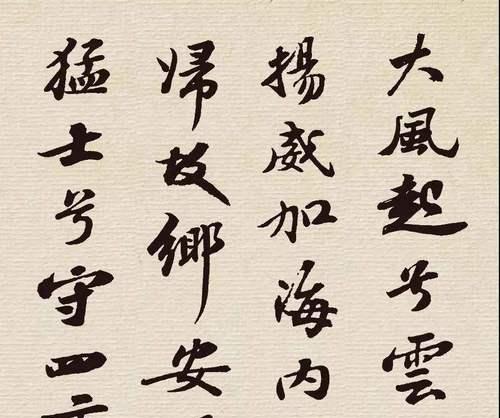 大風起兮雲
揚威加海内
歸故鄉安
猛士兮守四